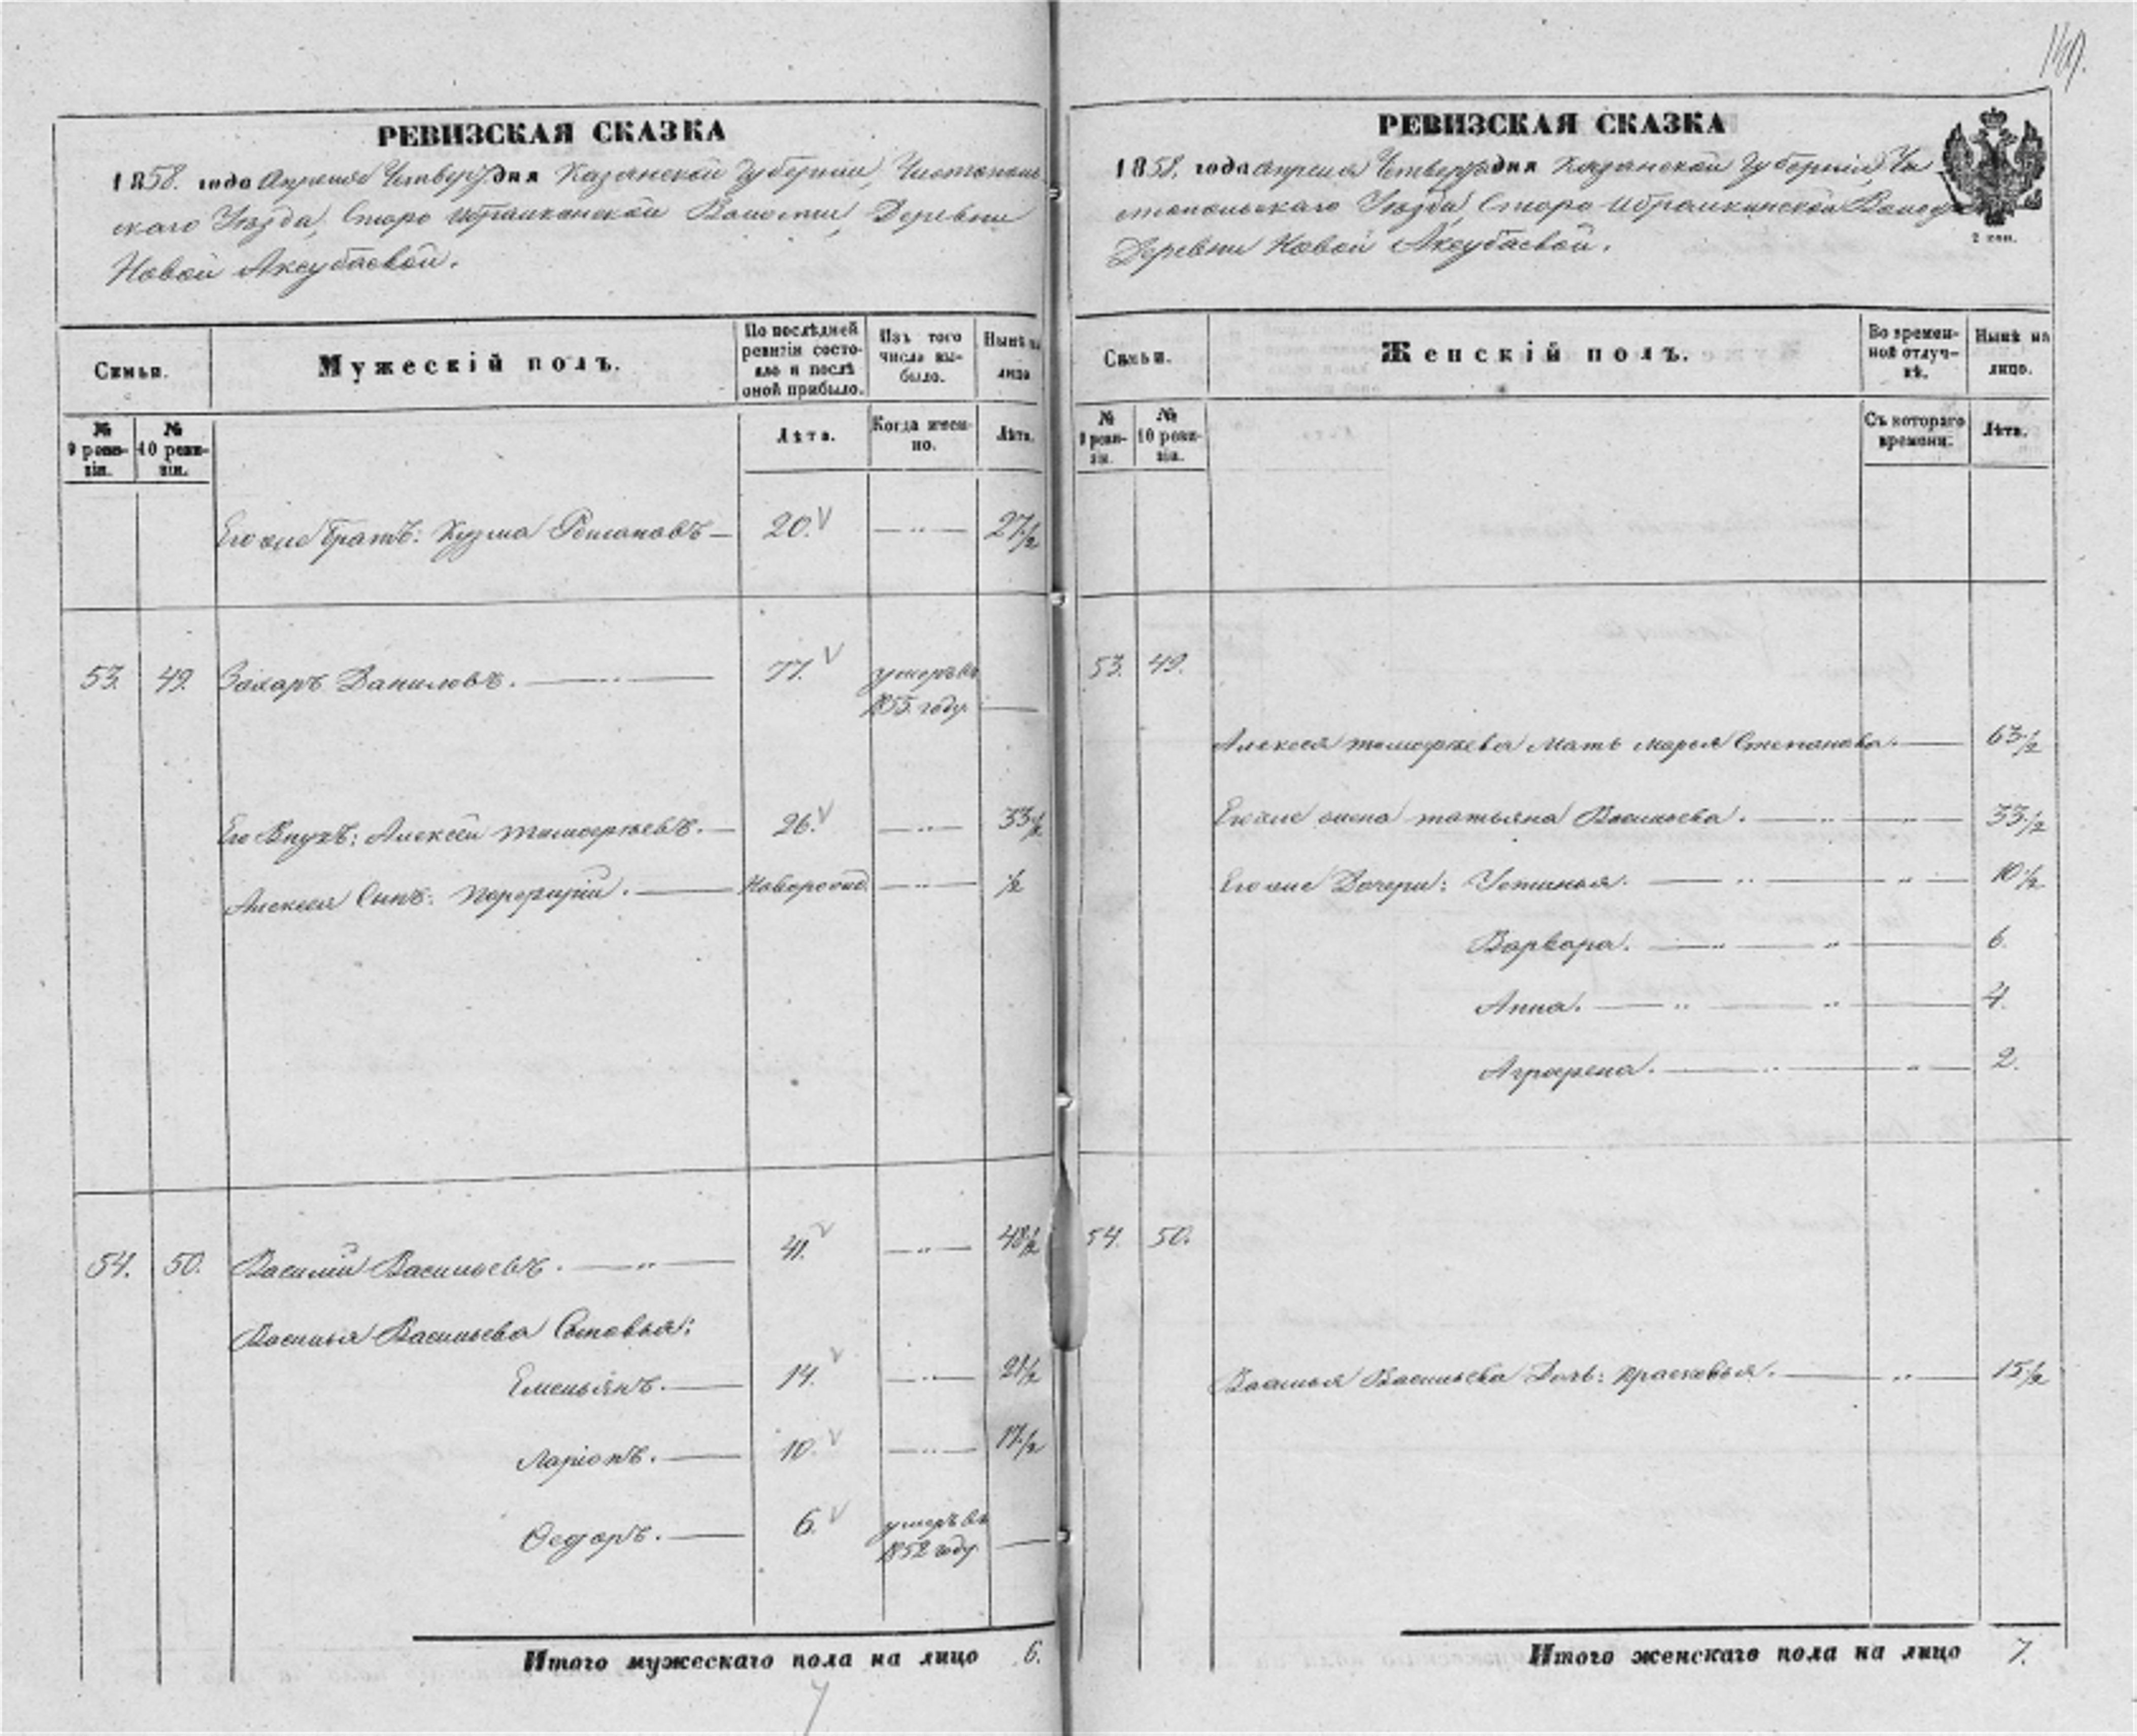 РЕВИЗСКАЯ СКАЗКА
1858. года Апреля Четверт. дня Казанской Губернии, Чистополь
скаго Уѣзда, Старо Ибрайкинской Волости, Деревни
Новой Аксубаевой.
Семьи.
Мужескій полъ.
По послѣдней ревизіи состояло и послѣ оной прибыло.
Изъ того числа выбыло.
Нынѣ на лицо
№ 9 ревизіи.
№ 10 ревизіи.
Лѣта.
Когда именно.
Лѣта.
Его же братъ: Кузма Романовъ — 20. — 27 1/2
53. 49. Захаръ Даниловъ. — 77. умеръ въ
1855. году. —
Его Внукъ: Алексѣй Тимофѣевъ. — 26. — 33 1/2
Алексея Сынъ: Порфирій. — Новорожд. — 1/2
54. 50. Василій Васильевъ. — 41. — 48 1/2
Василья Васильева Сыновья:
Емельянъ. — 14. — 21 1/2
Ларіонъ. — 10. — 17 1/2
Ѳедоръ. — 6. умеръ въ
1852 году. —
Итого мужескаго пола на лицо 6.
169.
РЕВИЗСКАЯ СКАЗКА
1858. года Апреля Четверт. дня Казанской Губерніи, Чи
стопольскаго Уѣзда, Старо Ибрайкинской Волости
Деревни Новой Аксубаевой.
2 коп.
Семьи.
Женскій полъ.
Во временной отлучкѣ.
Нынѣ на лицо.
№ 9 ревизіи.
№ 10 ревизіи.
Съ котораго времени.
Лѣта.
53. 49.
Алексея Тимофѣева Мать Марья Степанова. — 63 1/2
Его же жена Татьяна Васильева. — 33 1/2
Его же Дочери: Устинья. — 10 1/2
Варвара. — 6.
Анна. — 4.
Аграфена. — 2.
54. 50.
Василья Васильева Дочь: Прасковья. — 15 1/2
Итого женскаго пола на лицо 7.